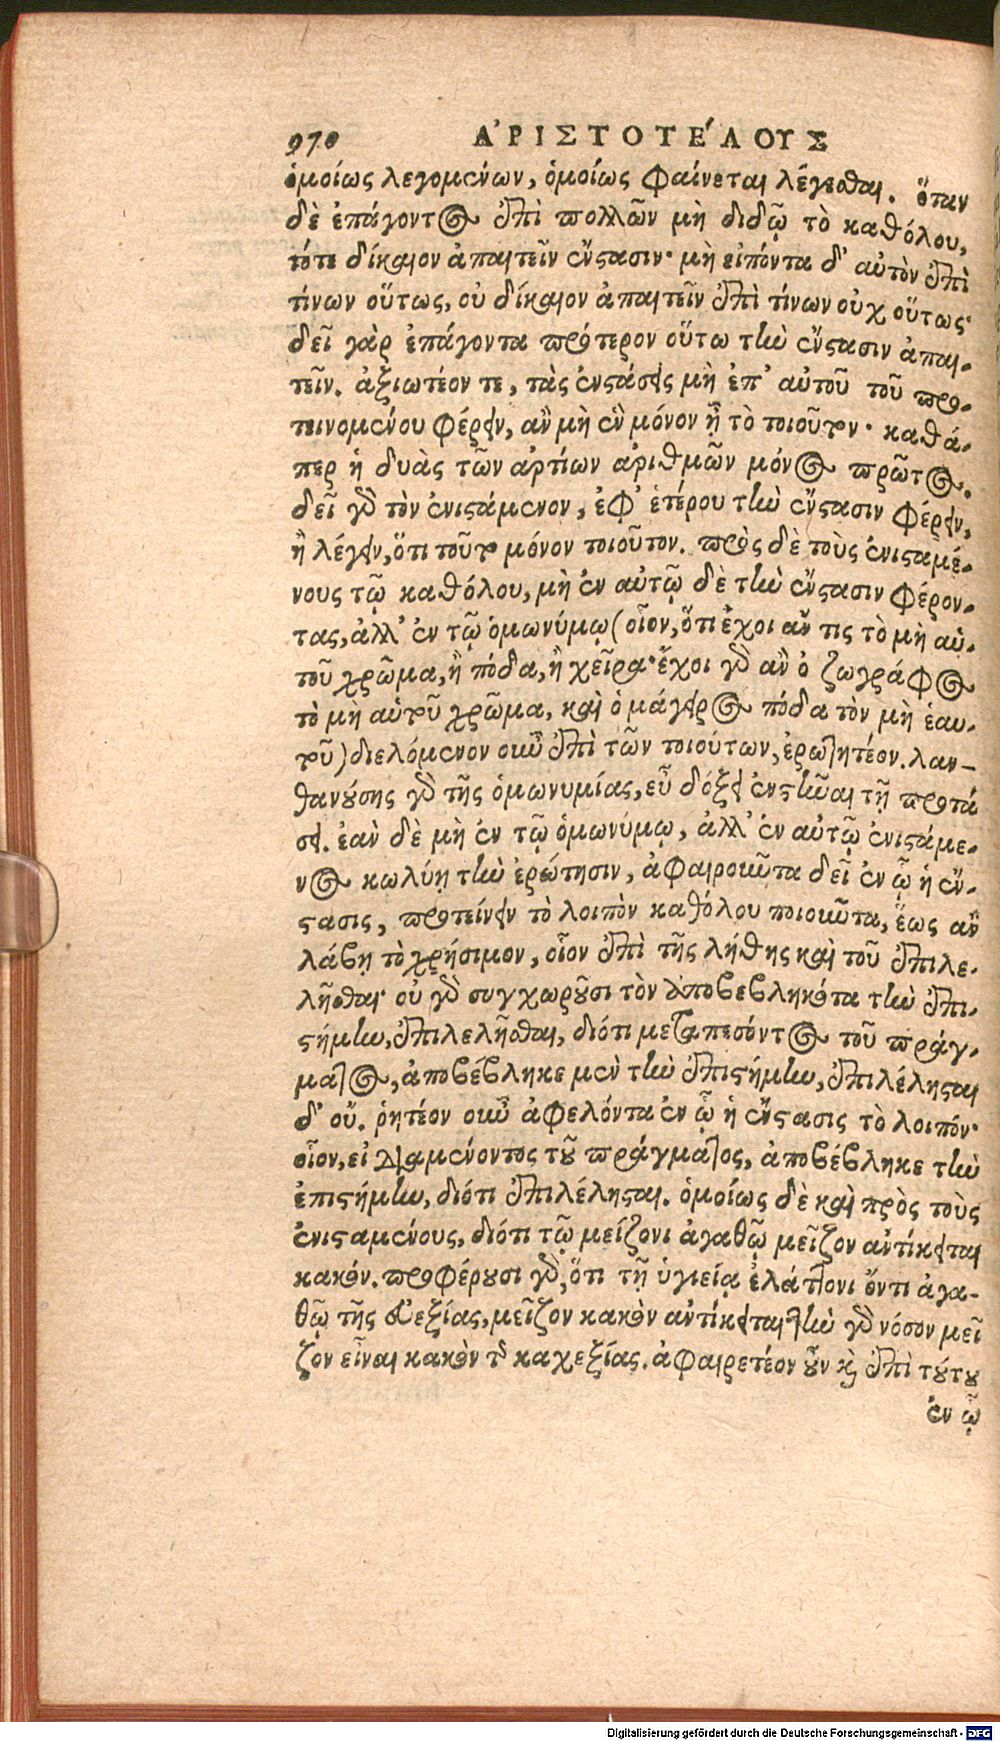 970 ἈΡΙΣΤΟΤΈΛΟΥΣ
ὁμοίως λεγομένων, ὁμοίως φαίνεται λέγεσθαι. ὅταν
δὲ ἐπάγοντος ἐπὶ πολλῶν μὴ διδῷ τὸ καθόλου,
τότε δίκαιον ἀπαιτεῖν ἔνστασιν· μὴ εἰπόντα δ' αὐτὸν ἐπὶ
τίνων οὕτως, οὐ δίκαιον ἀπαιτεῖν ἐπὶ τίνων οὐχ οὕτως·
δεῖ γὰρ ἐπάγοντα πρότερον οὕτω τὴν ἔνστασιν ἀπαι-
τεῖν. ἀξιωτέον τε, τὰς ἐνστάσεις μὴ ἐπ' αὐτοῦ τοῦ προ-
τεινομένου φέρειν, ἂν μὴ ἓν μόνον ᾖ τὸ τοιοῦτον· καθά-
περ ἡ δυὰς τῶν ἀρτίων ἀριθμῶν μόνος πρῶτος.
δεῖ γὰρ τὸν ἐνιστάμενον, ἐφ' ἑτέρου τὴν ἔνστασιν φέρειν,
ἢ λέγειν, ὅτι τοῦτο μόνον τοιοῦτον. πρὸς δὲ τοὺς ἐνισταμέ-
νους τῷ καθόλου, μὴ ἐν αὐτῷ δὲ τὴν ἔνστασιν φέρον-
τας, ἀλλ' ἐν τῷ ὁμωνύμῳ (οἷον, ὅτι ἔχοι ἄν τις τὸ μὴ αὑ-
τοῦ χρῶμα, ἢ πόδα, ἢ χεῖρα· ἔχοι γὰρ ἂν ὁ ζωγράφος
τὸ μὴ αὑτοῦ χρῶμα, καὶ ὁ μάγειρος πόδα τὸν μὴ ἑαυ-
τοῦ) διελόμενον οὖν ἐπὶ τῶν τοιούτων, ἐρωτητέον. λαν-
θανούσης γὰρ τῆς ὁμωνυμίας, εὖ δόξει ἐνστῆναι τῇ προτά
σει. ἐὰν δὲ μὴ ἐν τῷ ὁμωνύμῳ, ἀλλ' ἐν αὐτῷ ἐνιστάμε-
νος κωλύῃ τὴν ἐρώτησιν, ἀφαιροῦντα δεῖ ἐν ᾧ ἡ ἔν-
στασις, προτείνειν τὸ λοιπὸν καθόλου ποιοῦντα, ἕως ἂν
λάβῃ τὸ χρήσιμον, οἷον ἐπὶ τῆς λήθης καὶ τοῦ ἐπιλε-
λῆσθαι· οὐ γὰρ συγχωροῦσι τὸν ἀποβεβληκότα τὴν ἐπι-
στήμην, ἐπιλελῆσθαι, διότι μεταπεσόντος τοῦ πράγ-
ματος, ἀποβέβληκε μὲν τὴν ἐπιστήμην, ἐπιλέλησται
δ' οὔ. ῥητέον οὖν ἀφελόντα ἐν ᾧ ἡ ἔνστασις τὸ λοιπόν·
οἷον, εἰ διαμένοντος τοῦ πράγματος, ἀποβέβληκε τὴν
ἐπιστήμην, διότι ἐπιλέλησται. ὁμοίως δὲ καὶ πρὸς τοὺς
ἐνισταμένους, διότι τῷ μείζονι ἀγαθῷ μεῖζον ἀντίκειται
κακόν. προφέρουσι γὰρ, ὅτι τῇ ὑγιείᾳ ἐλάττονι ὄντι ἀγα-
θῷ τῆς εὐεξίας, μεῖζον κακὸν ἀντίκειται· τὴν γὰρ νόσον μεῖ
ζον εἶναι κακὸν τῆς καχεξίας. ἀφαιρετέον οὖν καὶ ἐπὶ τούτου
ἐν ᾧ
Digitalisierung gefördert durch die Deutsche Forschungsgemeinschaft - DFG